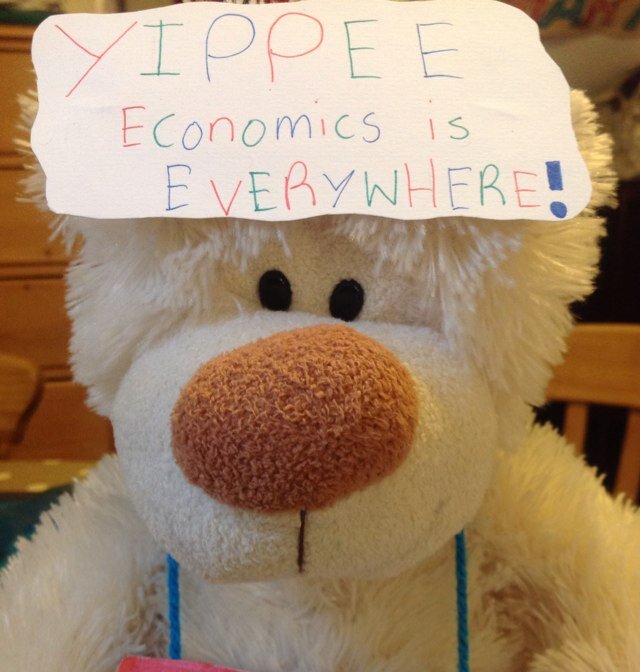 YIPPEE
ECONOMiCS iS
EVERYWHERE!